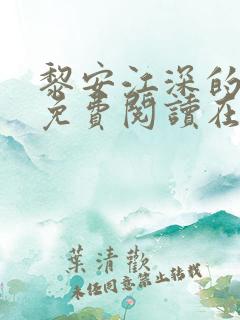 黎安江深的
免費閱讀在
葉清歡
未經同意禁止轉載